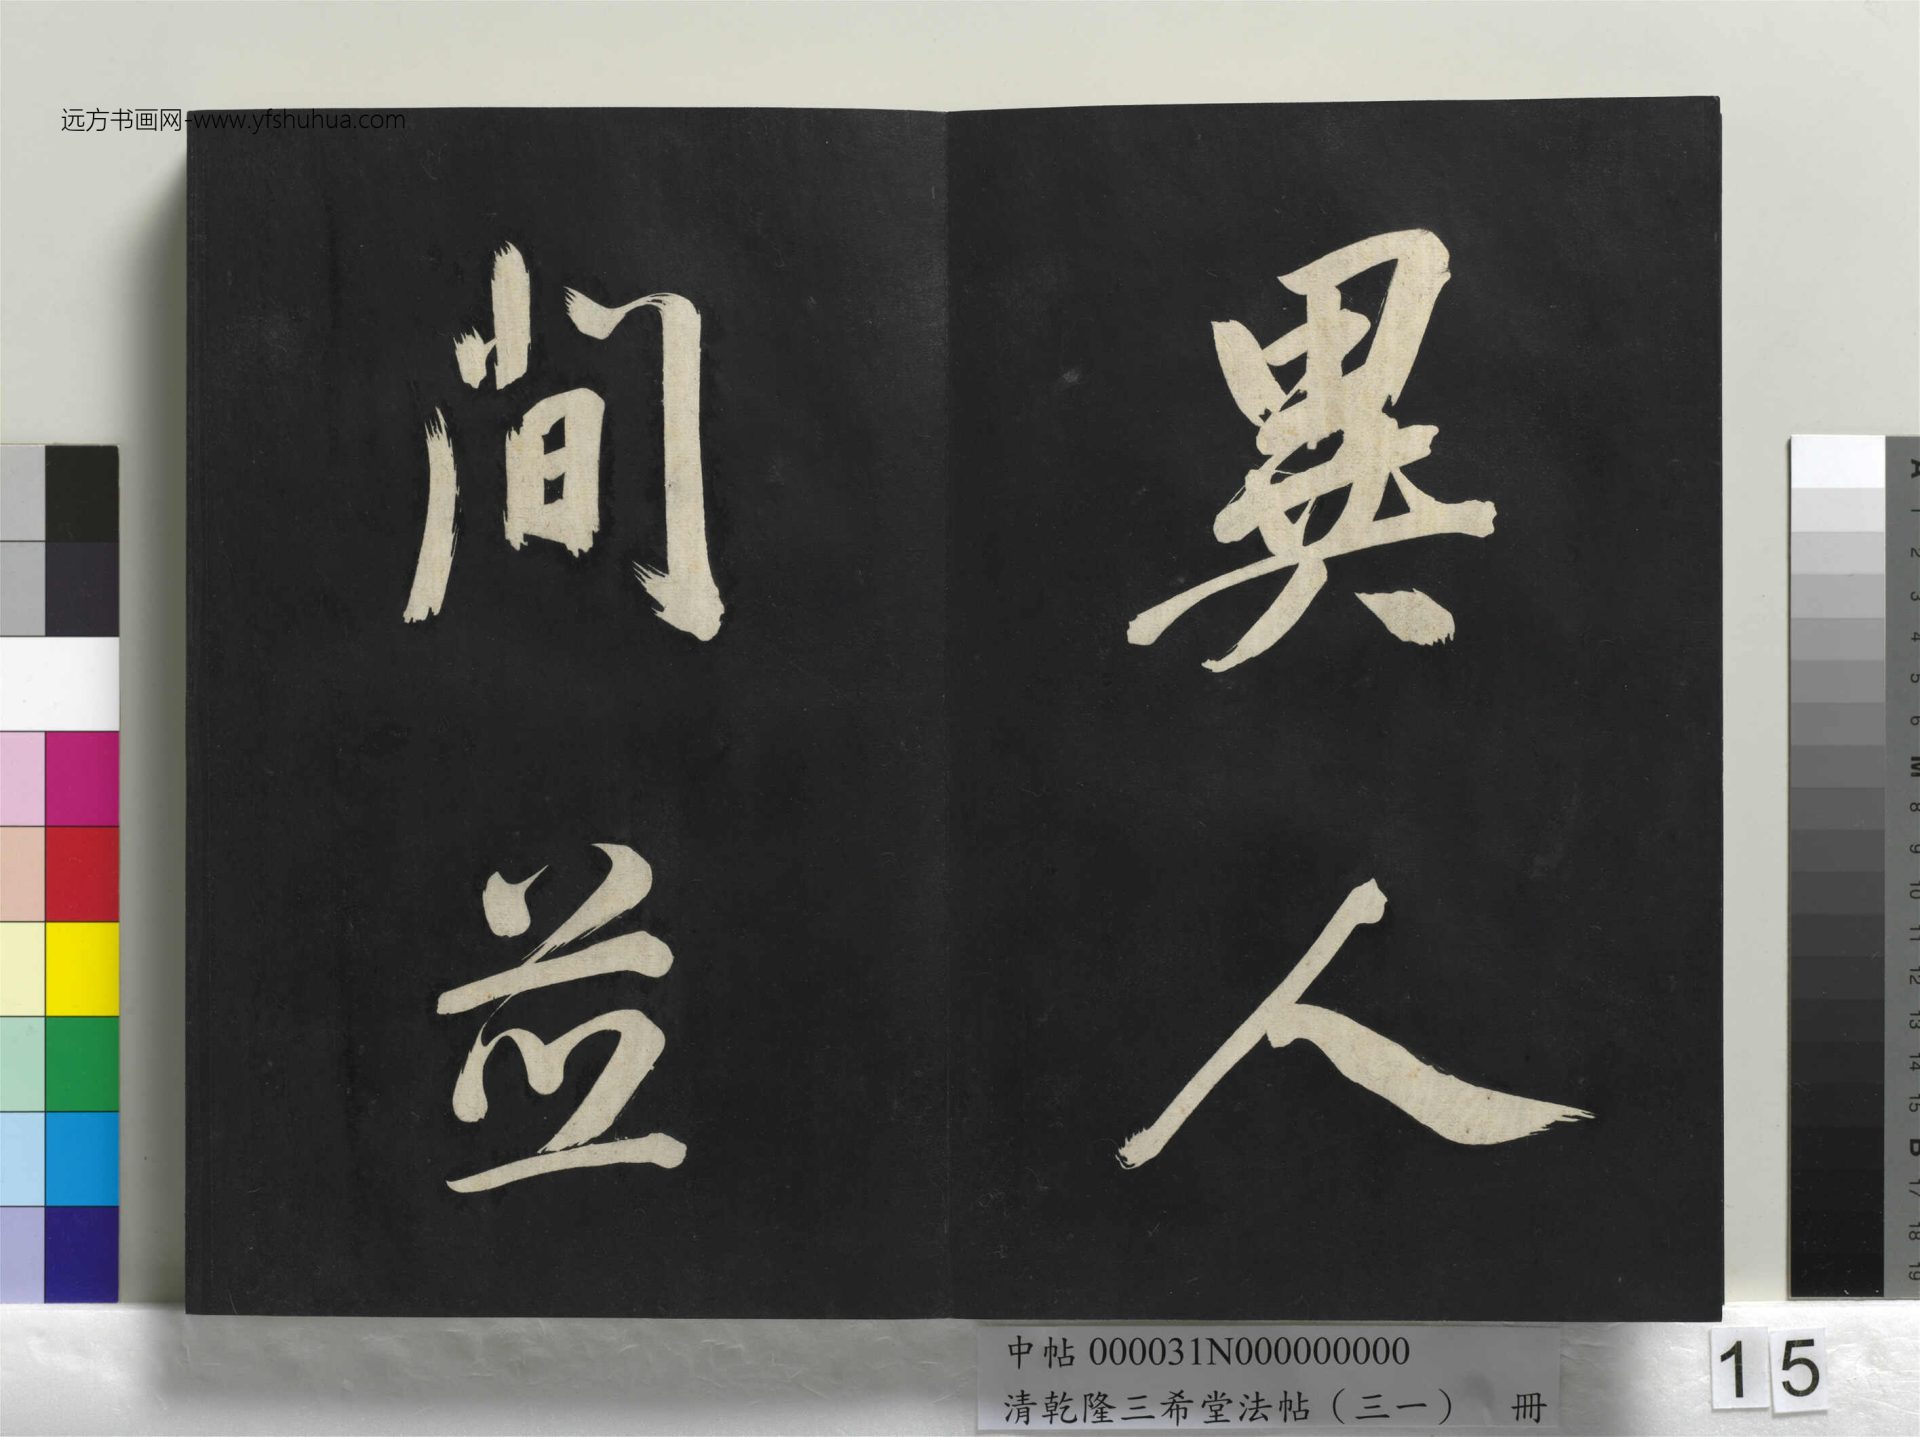 远方书画网-www.yfshuhua.com
異人
間並
中帖 000031N000000000
清乾隆三希堂法帖（三一） 冊
15
A
1
2
3
4
5
6
M
8
9
10
11
12
13
14
15
B
17
18
19